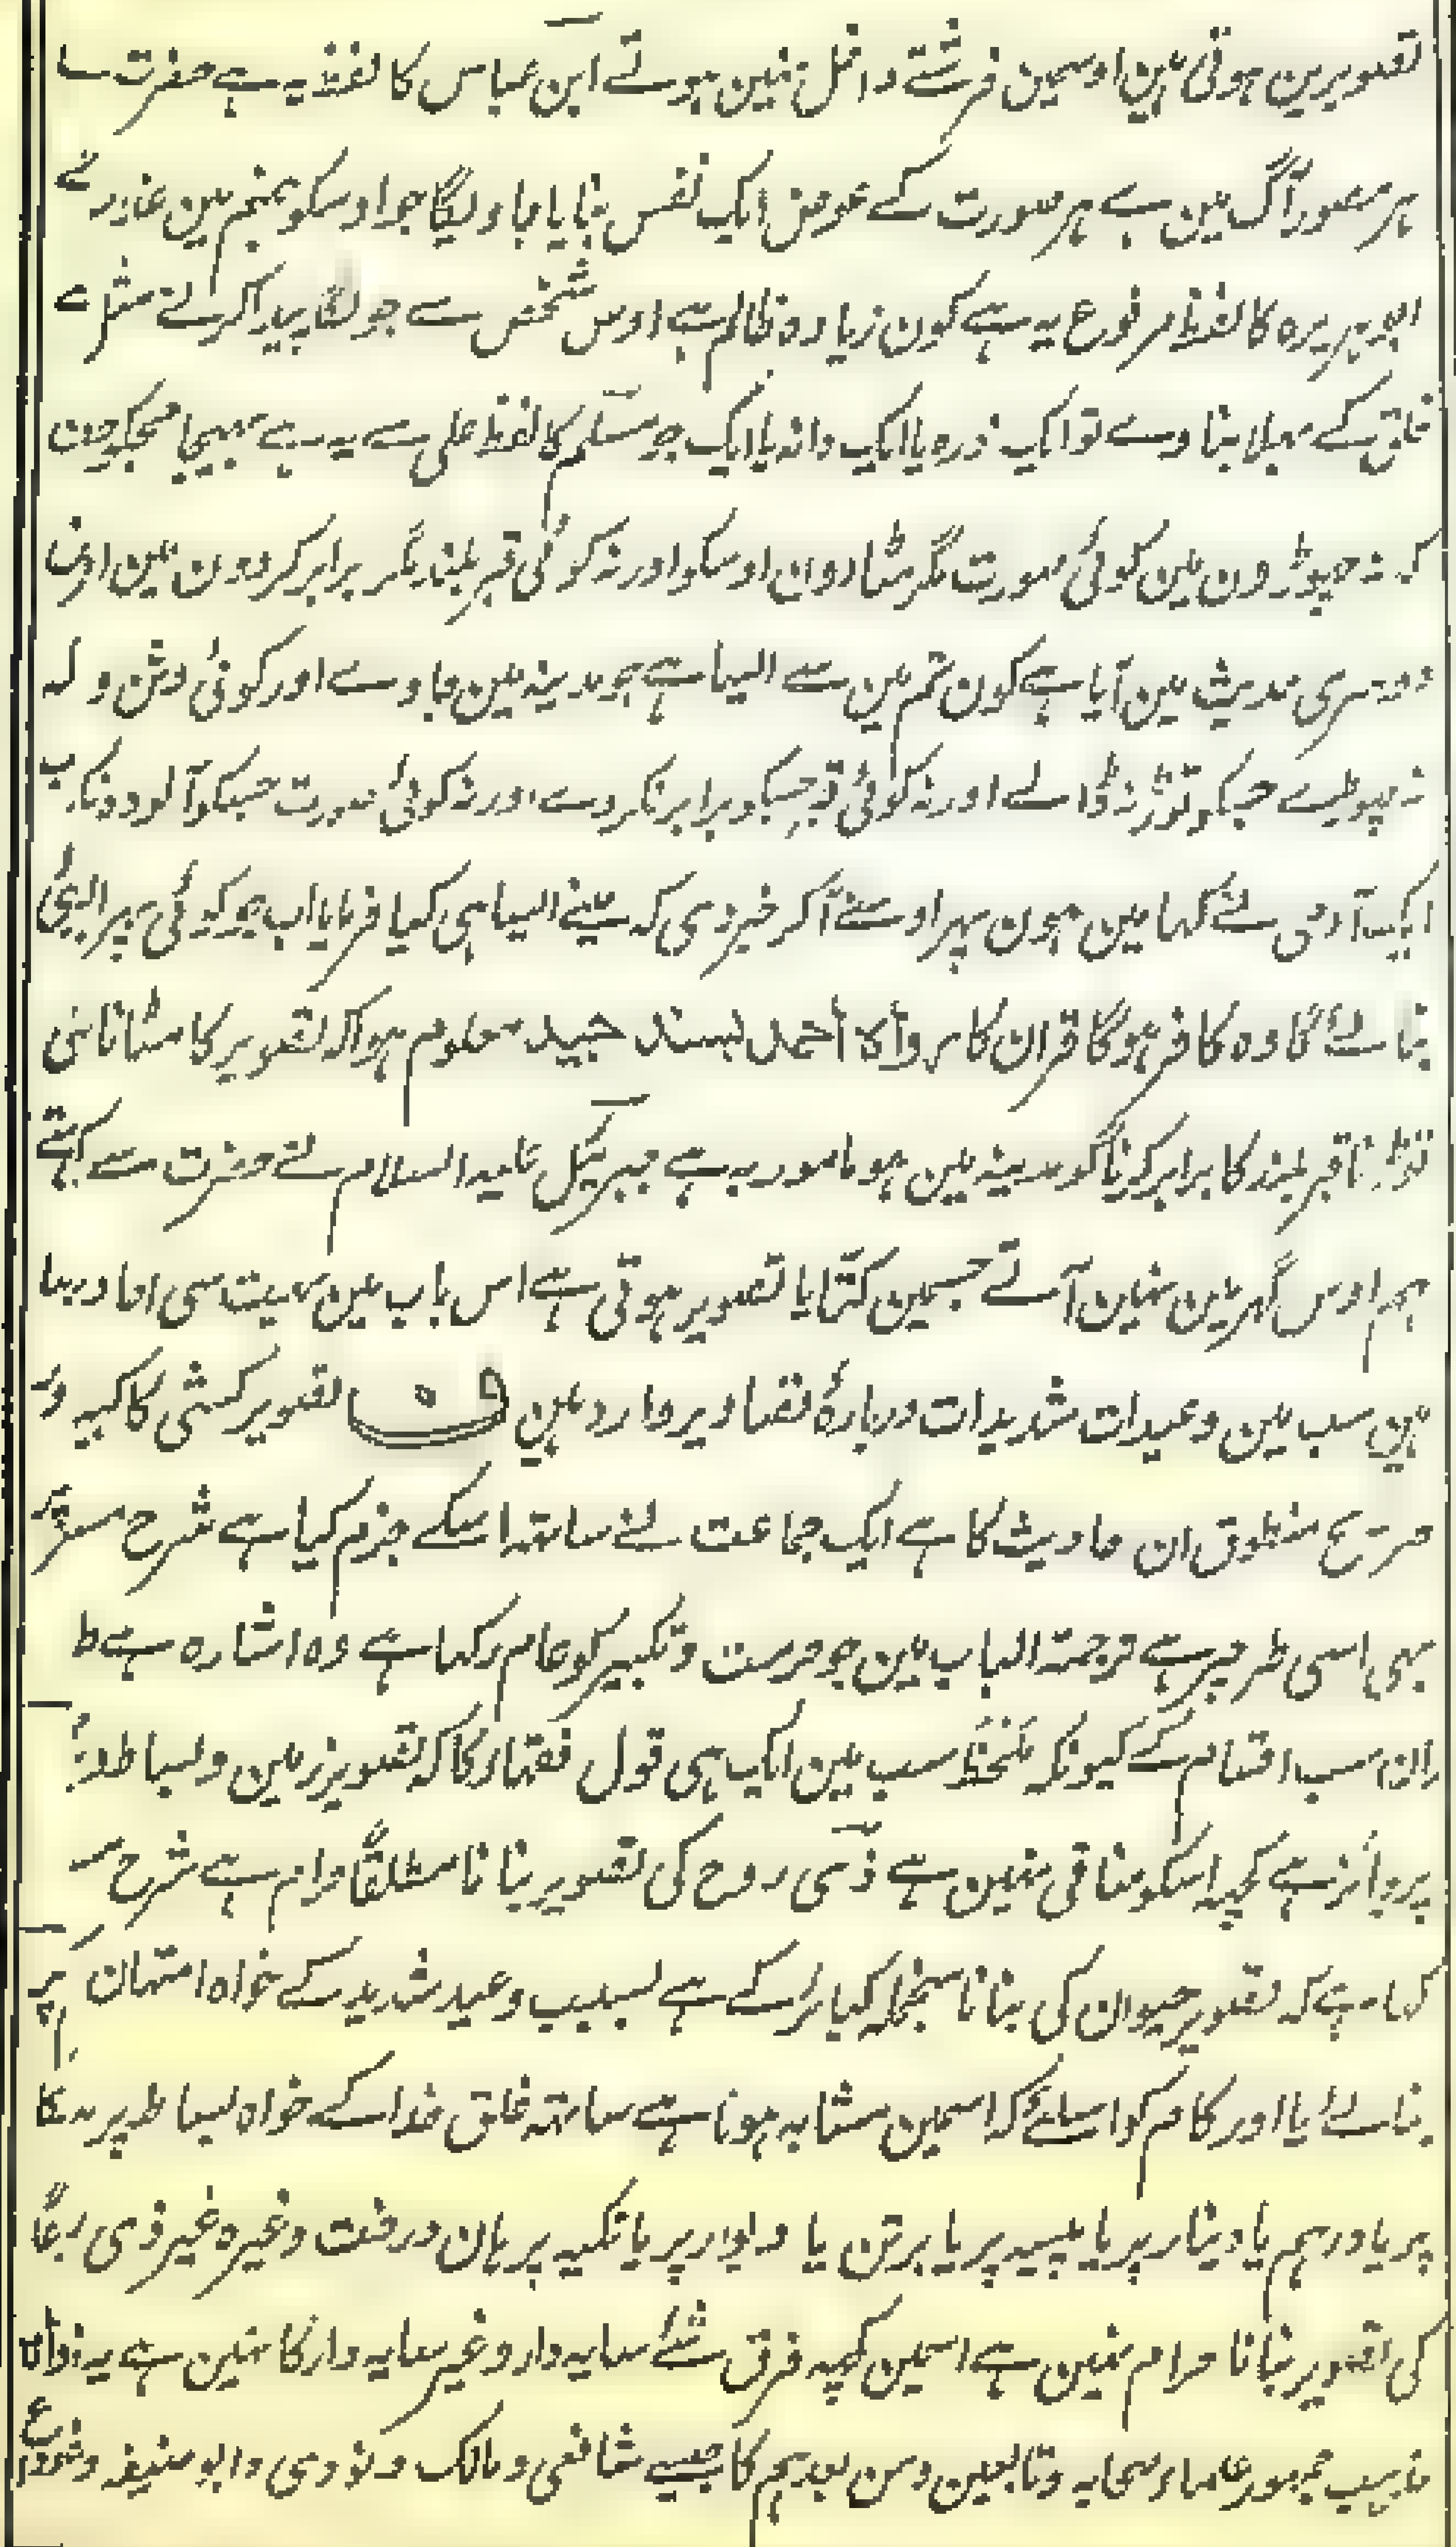 تصویرین ہوتی ہین اوسمین فرشتے داخل نہین ہوتے ابن عباس کا لفظ یہ ہے حضرت سا
ہر مصور آگ مین ہے ہر صورت کے عوض ایک نفس بنایا جاویگا جو اوسکو جہنم مین عذاب
ابو ہریرہ کا لفظ مرفوع یہ ہے کون زیادہ ظالم ہے اوس شخص سے جو لگا پیدا کرنے مثل
خلق کے بھلا بنا وے تو ایک ذرہ یا ایک دانہ یا ایک جو مسلم کا لفظ علی سے یہ ہے بھیجا مجکو
کہ نہ چھوڑون مین کوئی صورت مگر مٹا دون اوسکو اور نہ کوئی قبر بلند مگر برابر کر دون مین
دوسری حدیث مین آیا ہے کون تم مین سے ایسا ہے جو مدینہ مین جاوے اور کوئی وثن
نہ چھوڑے جسکو توڑ نڈالے اور نہ کوئی قبر جسکو برابر نکردے اور نہ کوئی صورت جسکو آلودہ نکرے
ایک آدمی نے کہا مین ہون پہر اوسنے آکر خبر دی کہ مینے ایسا ہی کیا فرمایا اب جو کوئی پہر
بنائے گا وہ کافر ہوگا قران کا رواہ احمد بسند جید معلوم ہوا کہ تصویر کا مٹانا
توڑنا قبر بلند کا برابر کرنا گو مدینہ مین ہو مامور بہ ہے جبرئیل علیہ السلام نے حضرت سے کہا تھے
ہم اوس گھر مین نہین آتے جسمین کتا یا تصویر ہوتی ہے اس باب مین بہت سی احادیث
ہین سب مین وعیدات شدیدات دربارۂ تصاویر وارد ہین ف تصویر کشی کا کبیرہ
صریح منطوق ان حادیث کا ہے ایک جماعت نے ساتھ اسکے جزم کیا ہے شرح مسلم
بھی اسی طرح پر ہے ترجمۃ الباب مین جو حرمت وتکبیر کو عام رکھا ہے وہ اشارہ ہے
ان سب اقسام کے کیونکہ ملحظ سب مین ایک ہی قول فقہاء کا کہ تصویر زمین وبساط
پر جائز ہے کچھ اسکو منافی نہین ہے ذی روح کی تصویر بنانا مطلقاً حرام ہے شرح
کہا ہے کہ تصویر حیوان کی بنانا منجملہ کبائر کے ہے بسبب وعید شدید کے خواہ امتہان
بنائے یا اور کام کو اسلئے کہ اسمین مشابہ ہونا ہے ساتھ خلق خدا کے خواہ بساط پر ہو یا
پر یا درہم یا دینار پر یا پیسہ پر یا برتن یا دیوار پر یا تکیہ پر ہان درخت وغیرہ غیر ذی
کی تصویر بنانا حرام نہین ہے اسمین کچھ فرق شئے سایہ دار وغیر سایہ دار کا نہین ہے یہ
مذہب جمہور علماء صحابہ وتابعین ومن بعدہم کا جیسے شافعی ومالک ونووی وابو حنیفہ